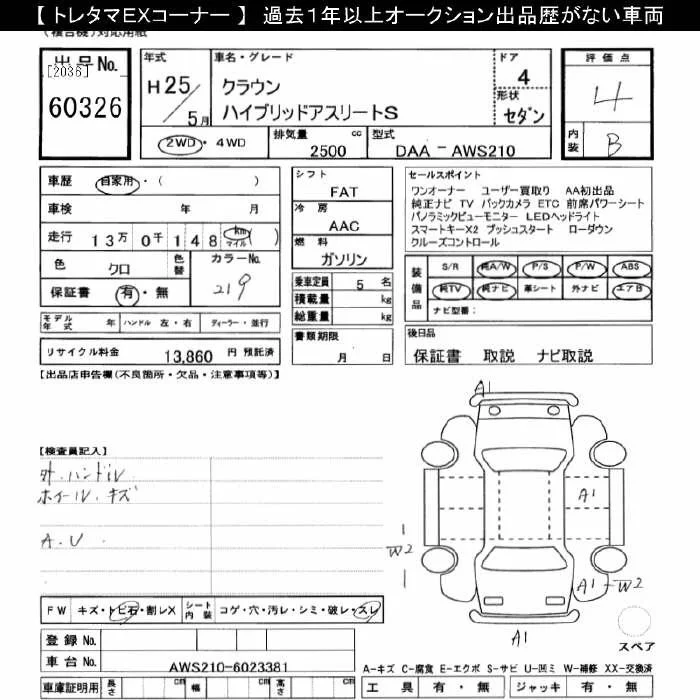 【 トレタマEXコーナー 】 過去1年以上オークション出品歴がない車両
(複合機)対応用紙
出品No. [2036] 60326
年式 H25/5月
車名・グレード クラウン ハイブリッドアスリートS
ドア 4
形状 セダン
2WD・4WD 排気量 2500 cc 型式 DAA-AWS210
評価点 4
内装 B
車歴 自家用・( )
車検 年 月
走行 13万0千148 km マイル ( )
色 クロ 色替 カラーNo. 219
保証書 有・無
モデル年式 年 ハンドル 左・右 ディーラー・並行
リサイクル料金 13,860 円 預託済
シフト FAT
冷房 AAC
燃料 ガソリン
乗車定員 5 名
積載量 kg
総重量 kg
書類期限 月 日
セールスポイント
ワンオーナー ユーザー買取り AA初出品
純正ナビ TV バックカメラ ETC 前席パワーシート
パノラミックビューモニター LEDヘッドライト
スマートキーX2 プッシュスタート ローダウン
クルーズコントロール
装備品 S/R 純A/W P/S P/W ABS
純TV 純ナビ 革シート 外ナビ エアB
ナビ型番:
後日品
保証書 取説 ナビ取説
【出品店申告欄(不良箇所・欠品・注意事項等)】
【検査員記入】
外.ハンドル
ホイール.キズ
A.U
A1
A1
W2
A1-W2
A1
スペア
FW キズ・トビ石・割レX シート内装 コゲ・穴・汚レ・シミ・破レ・スレ
登録No.
車台No. AWS210-6023381
車庫証明用 長さ cm 幅 cm 高さ cm
A-キズ C-腐食 E-エクボ S-サビ U-凹ミ W-補修 XX-交換済
工具 有・無 ジャッキ 有・無